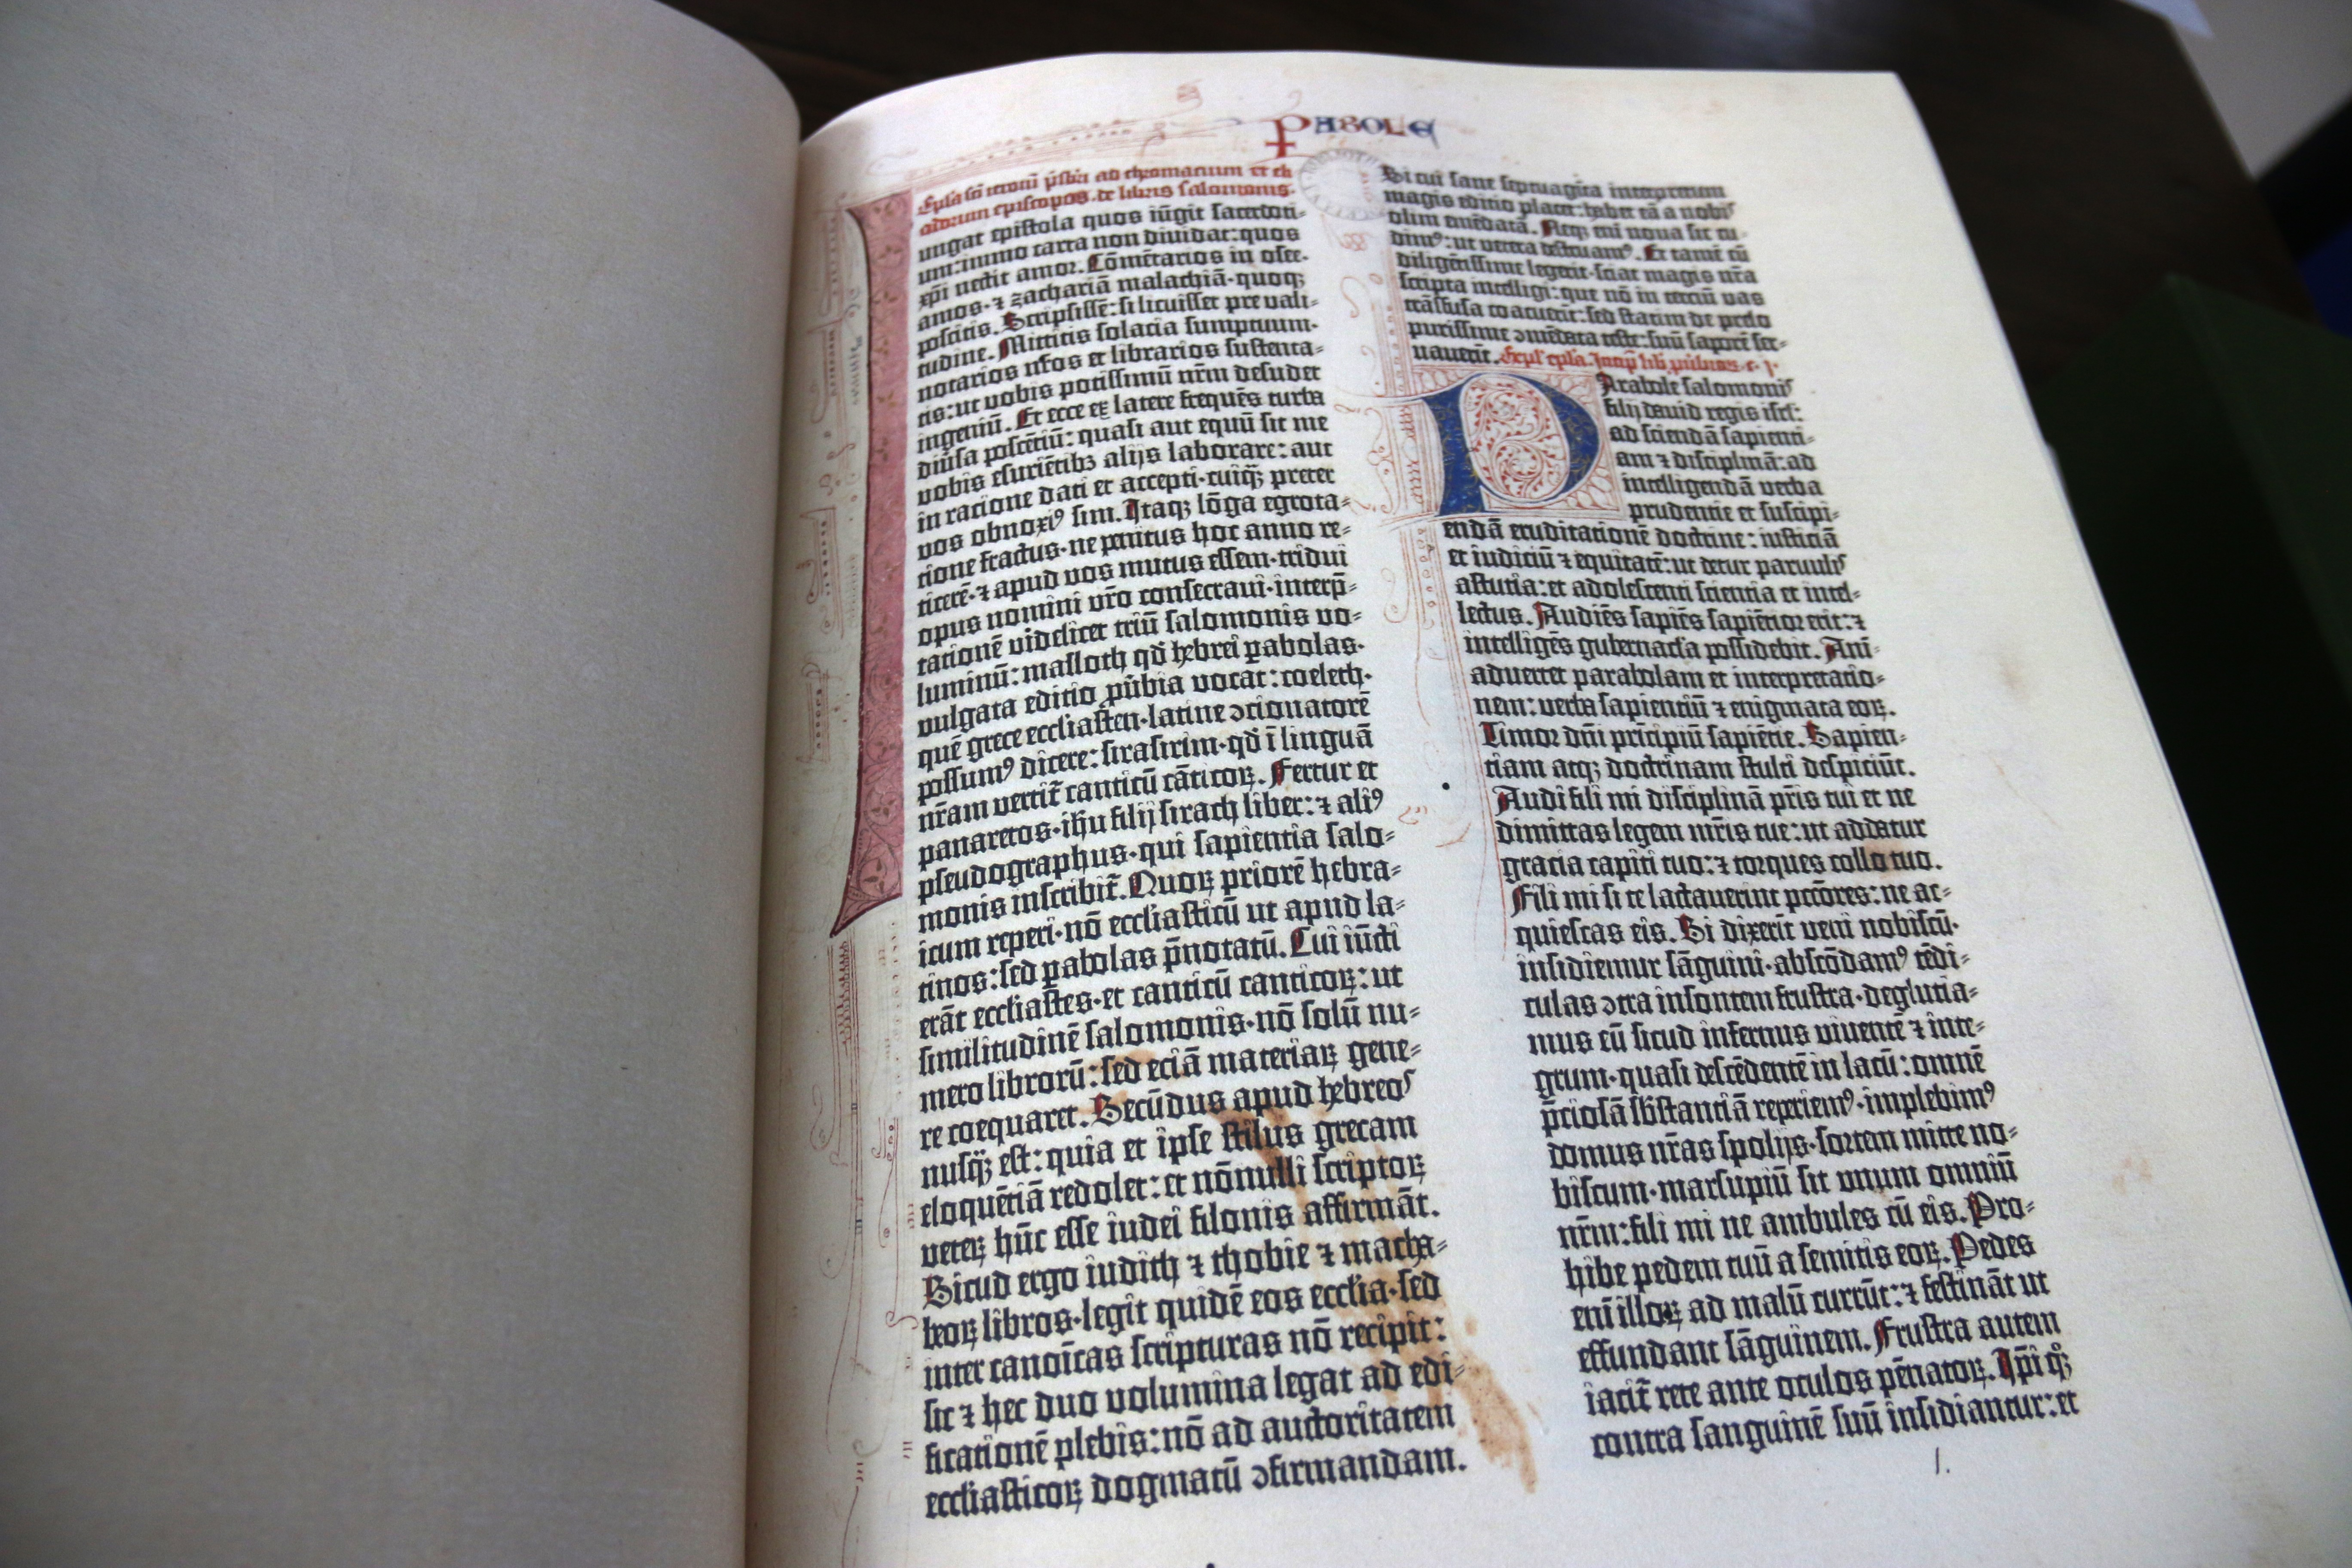 PABOLE
Epl̄a sc̄ti ieronimi p̄sbit̄i ad chromacium et eli
odorum episcopos · de libris salomonis ·
ungat epistola quos iūgit sacerdoti⸗
um: immo carta non diuidat: quos
xp̄i nectit amor. Cōmētarios in osee ·
amos · ⁊ zachariā malachiā · quoqꝫ
poscitis. Scripsissē: si licuisset pre vali⸗
tudine. Mittitis solacia sumptuum ·
notarios nr̄os et librarios sustenta⸗
tis: ut vobis potissimū nr̄m desudet
ingeniū. Et ecce ex latere frequēs turba
diūsa poscētiū: quasi aut equū sit me
vobis esuriētibꝫ alijs laborare: aut
in racione dati et accepti · cuiqꝫ̄ preter
vos obnoxiꝰ sim. Itaqꝫ lōga egrota⸗
tione fractus · ne penitus hoc anno re⸗
ticerē · ⁊ apud vos mutus essem · tridui
opus nomini vr̄o consecraui · interp̄⸗
tationē videlicet triū salomonis vo⸗
luminū: masloth qd̄ hebrei ꝑabolas ·
vulgata editio ꝓūbia vocat: coeleth ·
quē grece eccl̄iasten · latine ↄcionatorē
possumꝰ dicere: sirasirim · qd̄ ī linguā
nr̄am vertit̄ canticū cāticoꝝ. Fertur et
panaretos · ih̄u filij sirach liber: ⁊ aliꝰ
pseudographus · qui sapientia salo⸗
monis inscribit̄. Quoꝝ priorē hebra⸗
icum reperi · nō eccl̄iasticū ut apud la⸗
tinos: sed ꝑabolas p̄notatū. Cui iūcti
erāt eccl̄iastes · et canticū canticoꝝ: ut
similitudinē salomonis · nō solū nu⸗
mero librorū: sed eciā materiaꝝ gene⸗
re coequaret. Secūdus apud hebreos
nusqꝫ̄ est: quia et ipse stilus grecam
eloquētiā redolet: et nōnulli scriptoꝝ
veteꝝ hūc esse iudei filonis affirmāt.
Sicud ergo iudith ⁊ thobie ⁊ macha⸗
beoꝝ libros · legit quidē eos eccl̄ia · sed
inter canoīcas scripturas nō recipit:
sic ⁊ hec duo volumina legat ad edi⸗
ficationē plebis: nō ad auctoritatem
eccl̄iasticoꝝ dogmatū ↄfirmandam.
Si cui sane septuagīta interpretum
magis editio placet: habet eā a nobis
olim emēdatā. Neqꝫ eni noua sic cu⸗
dimꝰ: ut vetera destruamꝰ. Et tamē cū
diligētissime legerit · sciat magis nr̄a
scripta intelligi: que nō in terciū vas
trāsfusa coacuerit: sed statim de prelo
purissime ↄmēdata teste: suū saporē ser⸗
uauerit. Expl̄ epl̄a. Incip̄ lib̄ ꝓūbioꝝ · c · j ·
Parabole salomonis
filij dauid regis isrl̄:
ad sciendā sapienti⸗
am ⁊ disciplinā: ad
intelligendā verba
prudentie et suscipi⸗
endā eruditationē doctrine: iusticiā
et iudiciū ⁊ equitatē: ut detur paruulis
astutia: et adolescenti scientia et intel⸗
lectus. Audiēs sapiēs sapiētior erit: ⁊
intelligēs gubernac̄la possidebit. Ani⸗
aduertet parabolam et interpretatio⸗
nem: verba sapienciū ⁊ enigmata eoꝝ.
Timor dn̄i prīcipiū sapiētie. Sapien⸗
tiam atqꝫ doctrinam stulti despiciūt.
Audi fili mi disciplinā pr̄is tui et ne
dimittas legem mr̄is tue: ut addatur
gracia capiti tuo: ⁊ torques collo tuo.
Fili mi si te lactauerint pctōres: ne ac⸗
quiescas eis. Si dixerīt veni nobiscū ·
insidiemur sāguini · abscōdamꝰ tēdi⸗
culas ↄtra insontem frustra · deglutia⸗
mus eū sicud infernus viuentē ⁊ inte⸗
grum · quasi descēdentē in lacū: omnē
p̄ciosā sb̄stantiā reperiemꝰ · implebimꝰ
domus nr̄as spolijs · sortem mitte no⸗
biscum · marsupiū sit vnum omniū
nr̄m: fili mi ne ambules cū eis. Pro⸗
hibe pedem tuū a semitis eoꝝ. Pedes
eni illoꝝ ad malū currūt: ⁊ festināt ut
effundant sāguinem. Frustra autem
iacit̄ rete ante oculos pēnatoꝝ. Ip̄i qꝫ̊
contra sanguinē suū insidiantur: et
1.